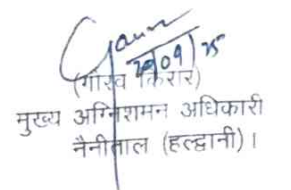 29/09/25
(गौरव किरार)
मुख्य अग्निशमन अधिकारी
नैनीताल (हल्द्वानी)।